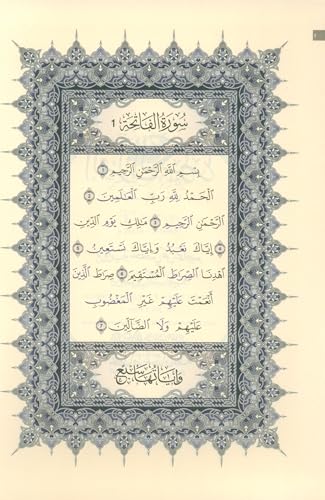 سورة الفاتحة 1
بِسْمِ ٱللَّهِ ٱلرَّحْمَٰنِ ٱلرَّحِيمِ ١
ٱلْحَمْدُ لِلَّهِ رَبِّ ٱلْعَٰلَمِينَ ٢
ٱلرَّحْمَٰنِ ٱلرَّحِيمِ ٣ مَٰلِكِ يَوْمِ ٱلدِّينِ
٤ إِيَّاكَ نَعْبُدُ وَإِيَّاكَ نَسْتَعِينُ ٥
ٱهْدِنَا ٱلصِّرَٰطَ ٱلْمُسْتَقِيمَ ٦ صِرَٰطَ ٱلَّذِينَ
أَنْعَمْتَ عَلَيْهِمْ غَيْرِ ٱلْمَغْضُوبِ
عَلَيْهِمْ وَلَا ٱلضَّآلِّينَ ٧
وآياتها سبع